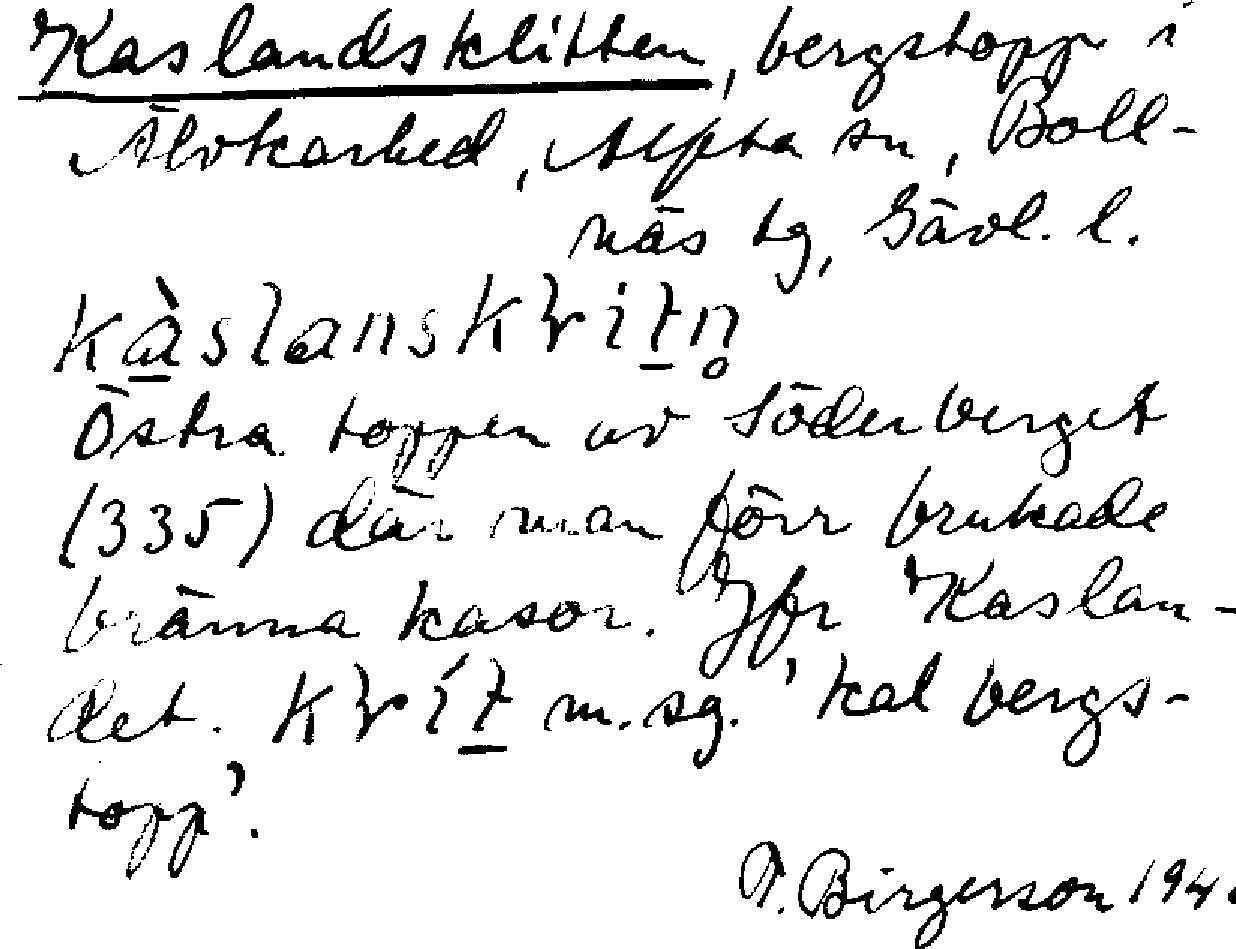 Kaslandsklitten, bergstopp i
Älvkarhed, Alfta sn, Boll-
näs tg, Gävl. l.
kàslanskɽitn̥
Östra toppen av Söderberget
(335) där man förr brukade
bränna kasor. Jfr Kaslan-
det. kɽít m.sg. 'kal bergs-
topp'.
Birgerson